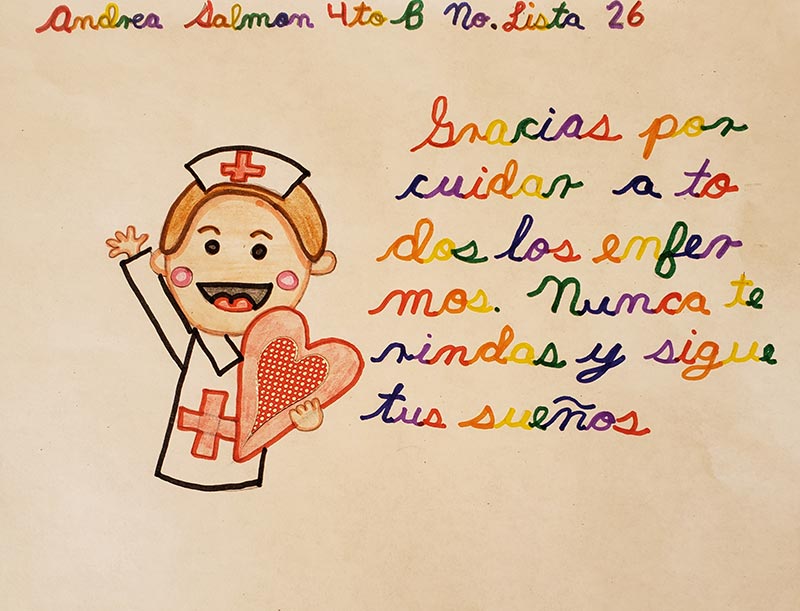 Andrea Salmon 4to B No. Lista 26
Gracias por
cuidar a to
dos los enfer
mos. Nunca te
rindas y sigue
tus sueños